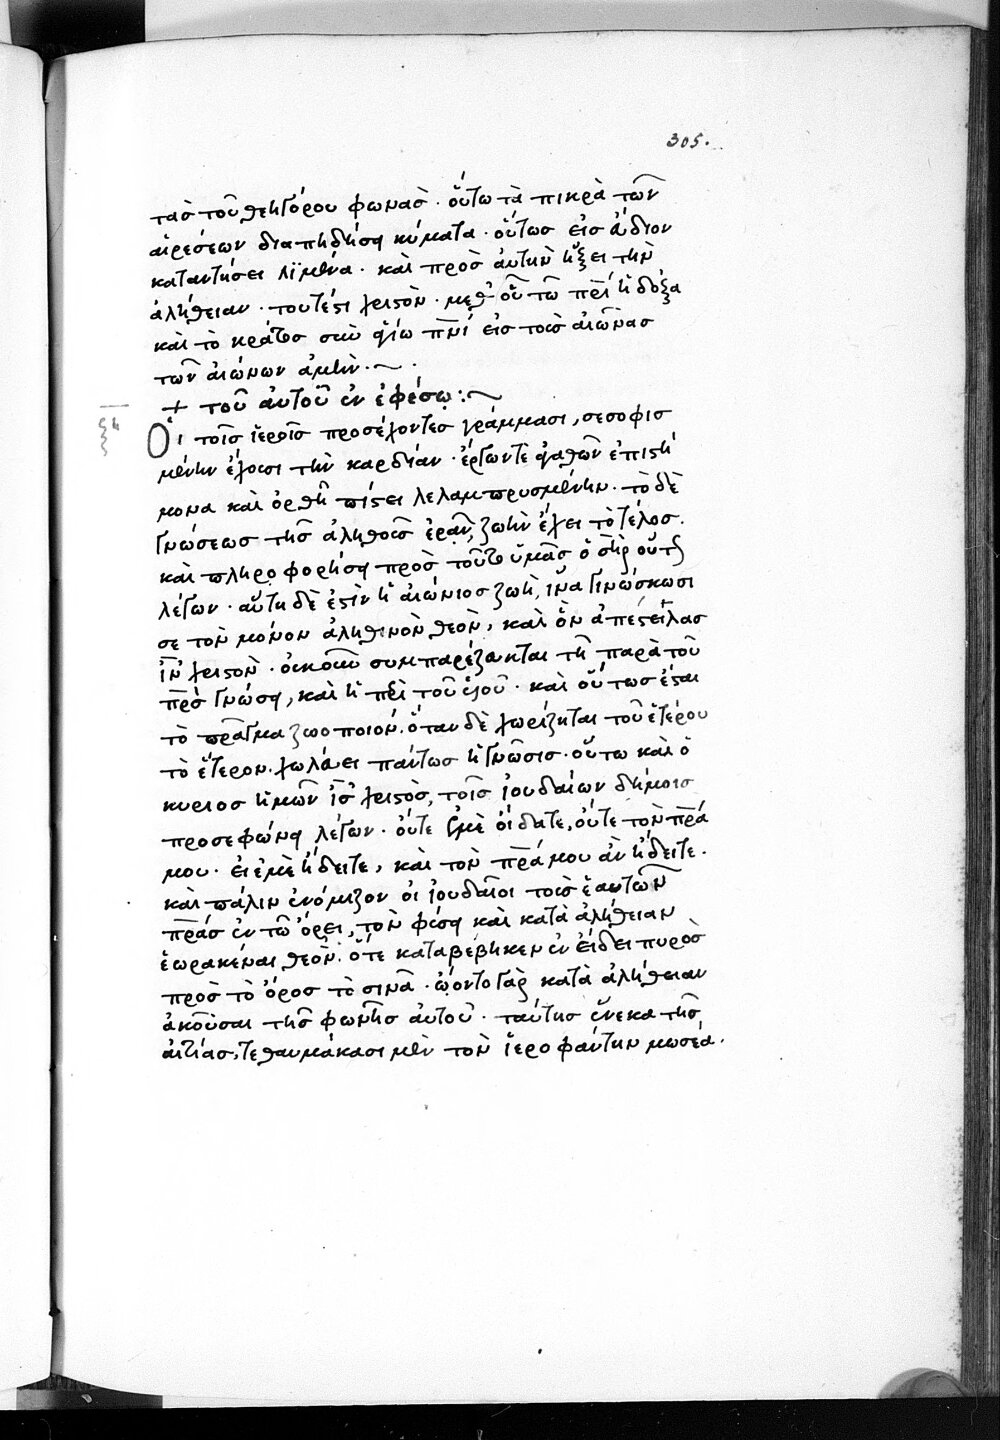 305.
τὰσ τοῦ θεηγόρου φωνὰσ · οὕτω τὰ πικρὰ τῶν
αἱρέσεων διαπηδήσῃ κύματα · οὕτωσ εἰσ ἀΐδιον
καταντήσει λϊμένα · καὶ πρὸσ ἀυτὴν ἥξει τὴν
ἀλήθειαν · τουτέστι χριστὸν · μεθ' οὗ τῶ πρὶ ἡ δόξα
καὶ τὸ κράτοσ σὺν ἁγίω πνι εἰσ τοὺσ αἰῶνασ
τῶν αἰώνων ἀμὴν · ~ ·
+ τοῦ ἀυτοῦ ἐν ἐφέσῳ : ~
Οἱ τοῖσ ἱεροῖσ προσέχοντεσ γράμμασι, σεσοφισ
μένην ἔχουσι τὴν καρδίαν · ἔργων τὲ ἀγαθῶν ἐπιστή
μονα καὶ ὀρθῆ πίστει λελαμπρυσμένην · τὸ δὲ
γνώσεωσ τῆσ ἀληθοῦσ ἐρᾶν, ζωὴν ἔχει τὸ τέλοσ.
καὶ πληροφορήσῃ πρὸσ τοῦτο ὑμᾶσ ὁ σηρ οὕτω
λέγων · αὕτη δὲ ἐστὶν ἡ αἰώνιοσ ζωὴ, ἵνα γινώσκωσι
σε τὸν μόνον ἀληθινὸν θεὸν, καὶ ὃν ἀπέστειλασ
ιν χριστὸν · οὐκοῦν συμπαρέζευκται τῆ παρὰ τοῦ
πρσ γνώσῃ, καὶ ἡ περὶ τοῦ υἱοῦ · καὶ οὕτωσ ἔσται
τὸ πρᾶγμα ζωοποιόν. ὅταν δὲ χωρίζηται τοῦ ἑτέρου
τὸ ἕτερον. χωλάνει πάντωσ ἡ γνῶσισ · οὕτω καὶ ὁ
κυριοσ ἡμῶν ισ χριστὸσ, τοῖσ ἰουδαίων δήμοισ
προσεφώνῃ λέγων · οὔτε ἐμὲ οἴδατε, οὔτε τὸν πρα
μου · ἐι ἐμὲ ἤδειτε, καὶ τὸν πρα μου ἀν ἤδειτε.
καὶ πάλιν ἐνόμιζον οἱ ἰουδαῖοι τοὺσ ἑαυτῶν
πρασ ἐν τῶ ὄρει, τὸν φύσῃ καὶ κατὰ ἀλήθειαν
ἑωρακέναι θεὸν. ὅτε καταβέβηκεν ἐν εἴδει πυρὸσ
πρὸσ τὸ ὄροσ τὸ σινᾶ · ὤοντο γὰρ κατὰ ἀλήθειαν
ἀκοῦσαι τῆσ φωνῆσ ἀυτοῦ · ταύτησ ἕνεκα τῆσ
αἰτίασ, τεθαυμάκασι μὲν τὸν ἱεροφάντην μωσέα.